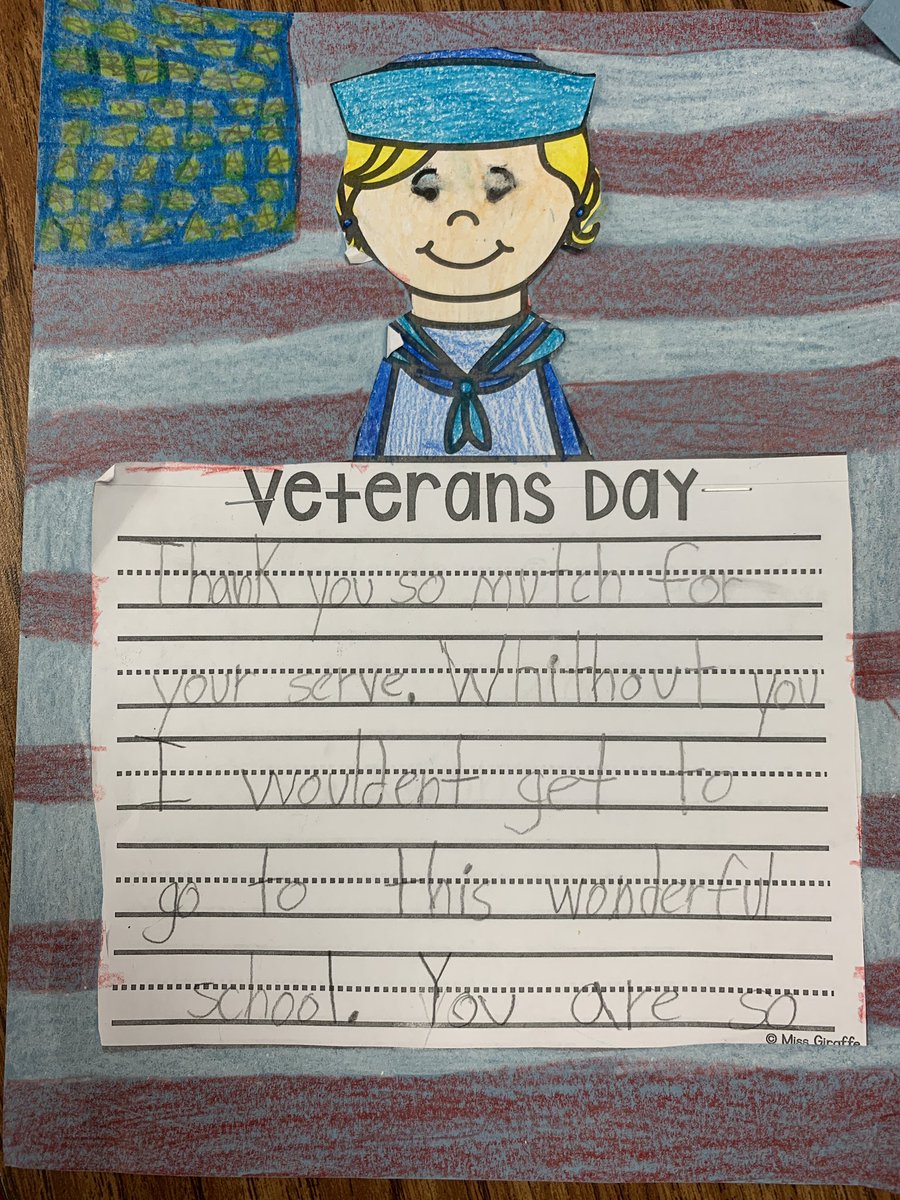 Veterans Day
Thank you so mutch for
your serve. Whithout you
I wouldent get to
go to this wonderful
school. You are so
© Miss Giraffe